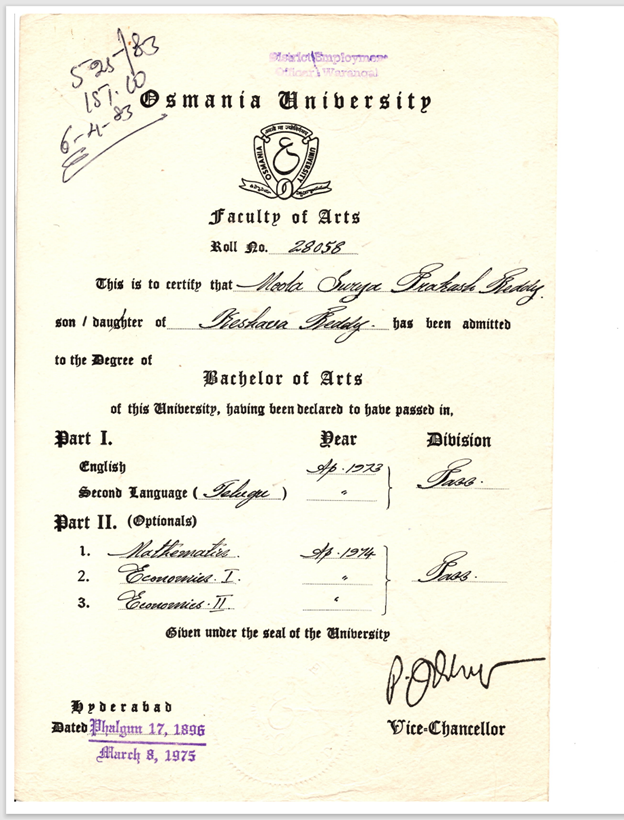 525/83
151.00
6-4-83
District Employment
Officer Warangal
Osmania University
OSMANIA UNIVERSITY
Faculty of Arts
Roll No. 28058
This is to certify that Moola Surya Prakash Reddy.
son / daughter of Keshava Reddy. has been admitted
to the Degree of
Bachelor of Arts
of this University, having been declared to have passed in,
Part I. Year Division
English Ap. 1973 Pass.
Second Language ( Telugu ) "
Part II. (Optionals)
1. Mathematics. Ap. 1974
2. Economics. I. " Pass.
3. Economics. II "
Given under the seal of the University
Hyderabad
Dated Phalgun 17, 1896 Vice-Chancellor
March 8, 1975